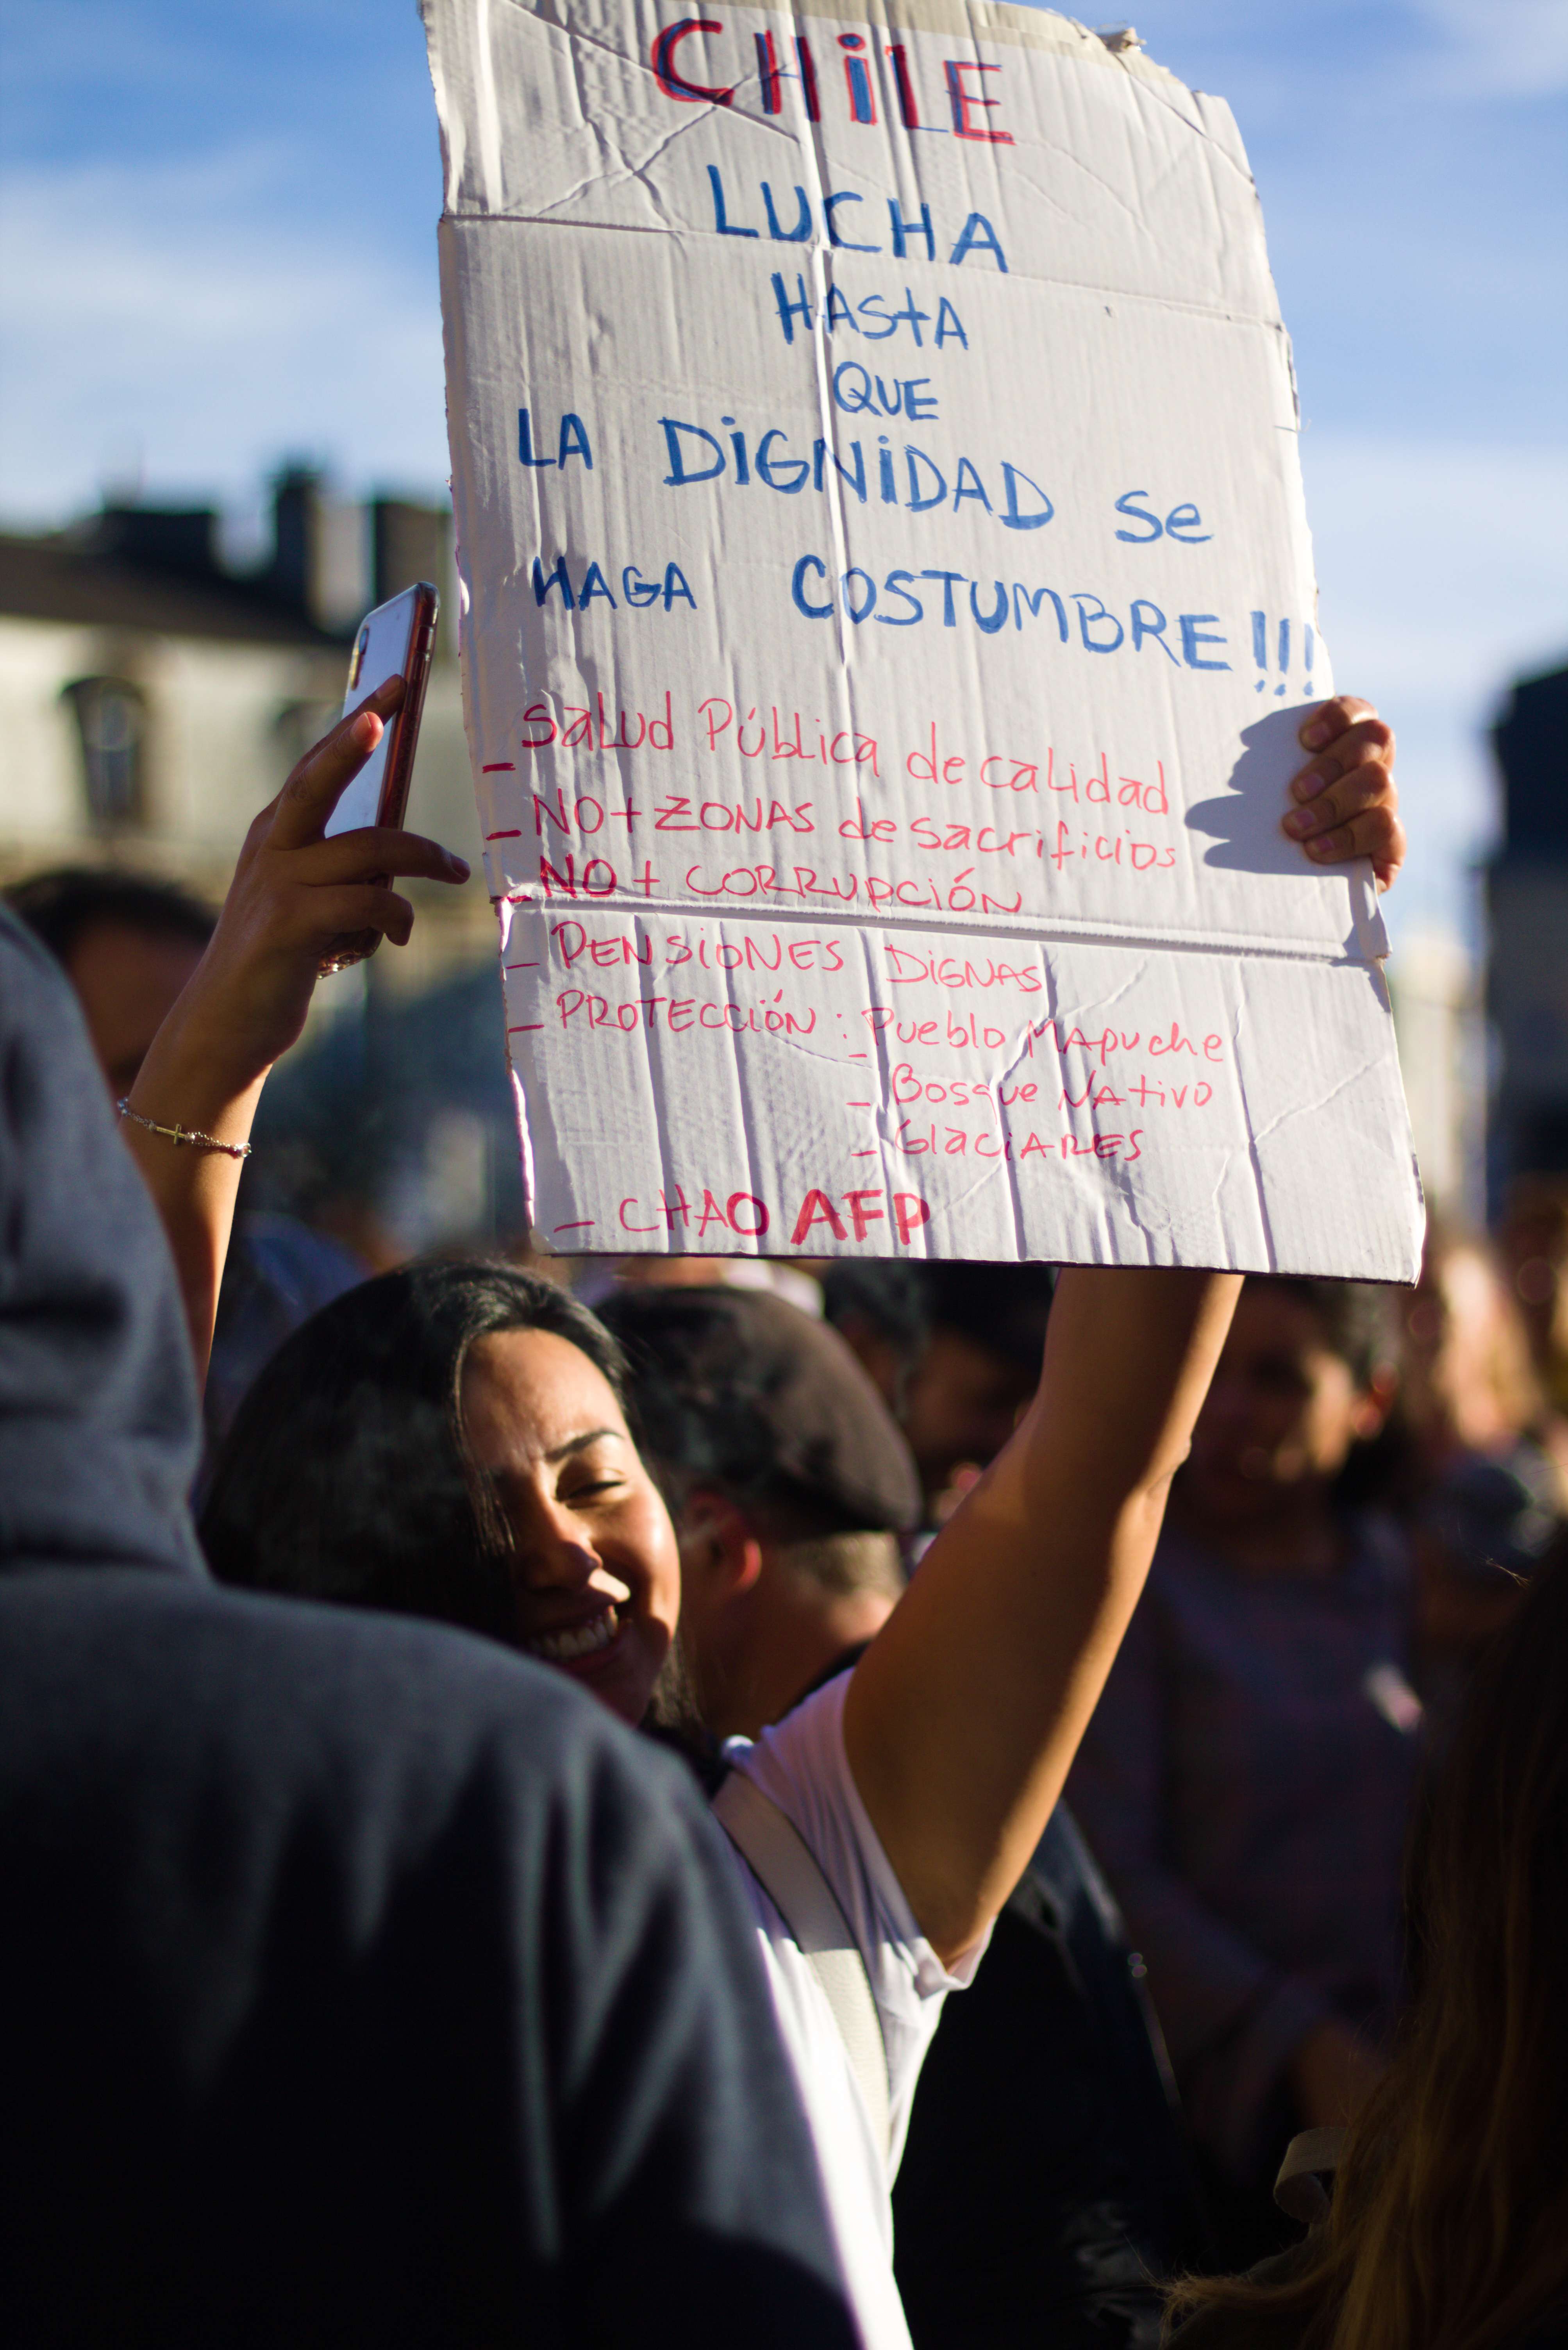 CHiLE
LUCHA
HAStA
QUE
LA DiGNiDAD Se
HAGA COSTUMBRE!!!
- Salud Pública de calidad
- NO+ ZONAS de sacrificios
- NO+ CORRUPCIÓN
- PENSiONES DiGNAS
- PROTECCIÓN: - Pueblo MApuche
- Bosque NAtivo
- GlaciARES
- CHAO AFP